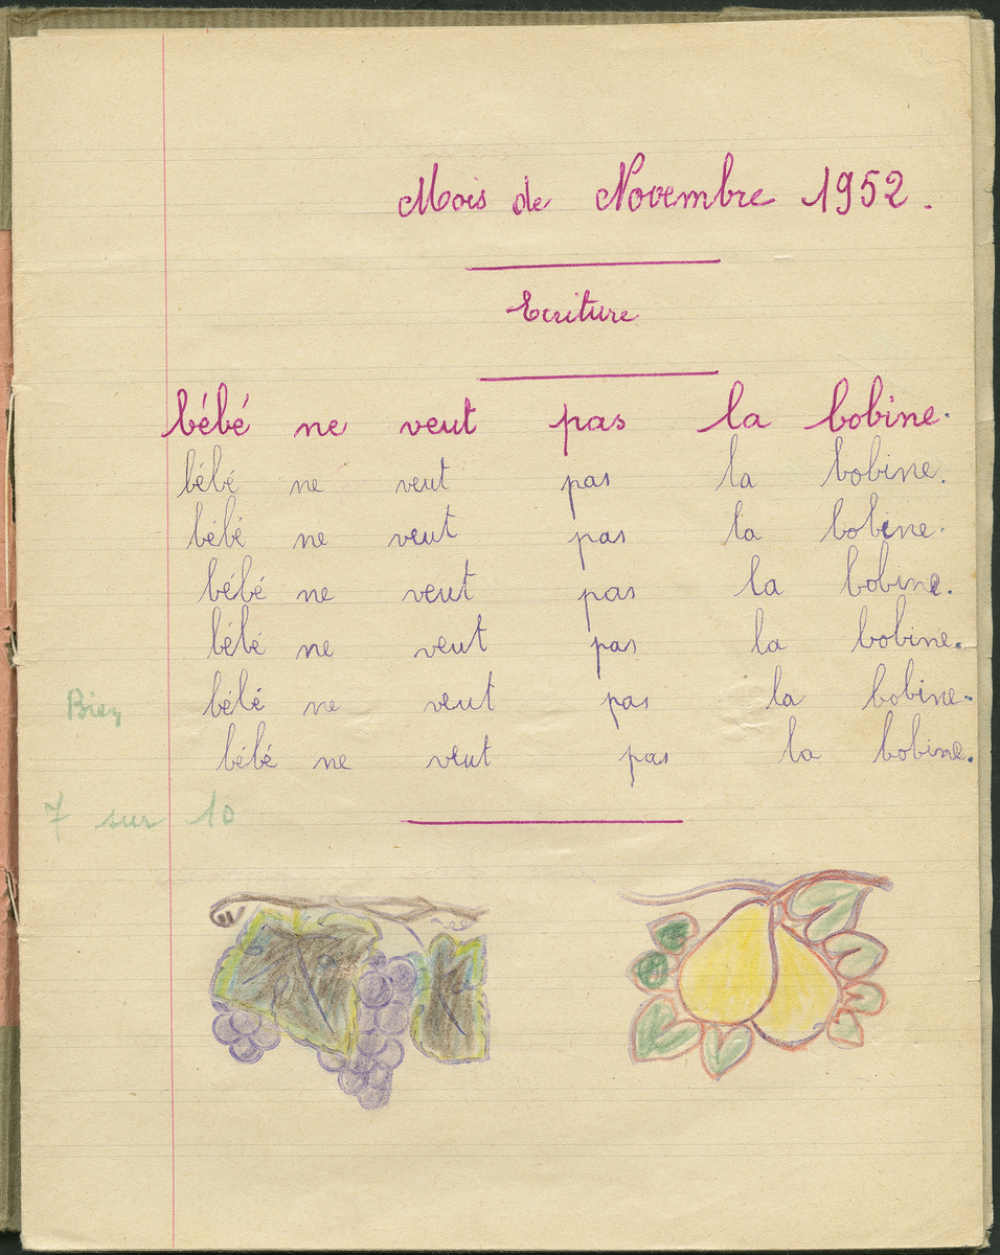 Mois de Novembre 1952.
Ecriture
bébé ne veut pas la bobine.
bébé ne veut pas la bobine.
bébé ne veut pas la bobine.
bébé ne veut pas la bobine.
bébé ne veut pas la bobine.
Bien
bébé ne veut pas la bobine.
bébé ne veut pas la bobine.
7 sur 10